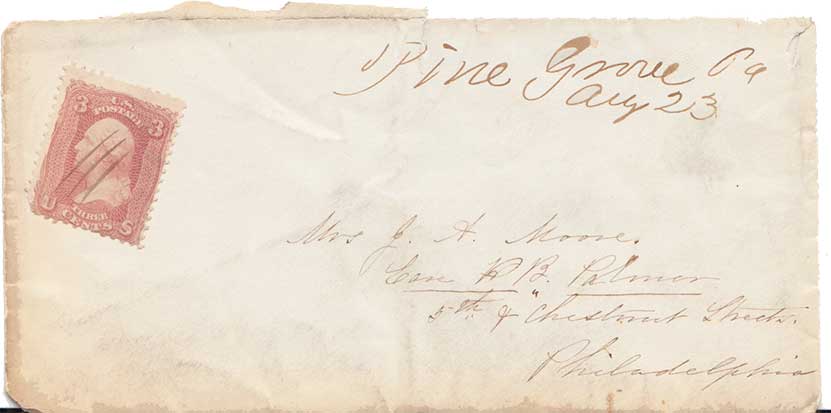 Pine Grove Pa
Aug 23
3 U.S. 3
POSTAGE
THREE
U CENTS S
Mrs J. A. Moore.
Care B. Palmer
5th & Chestnut Streets.
Philadelphia